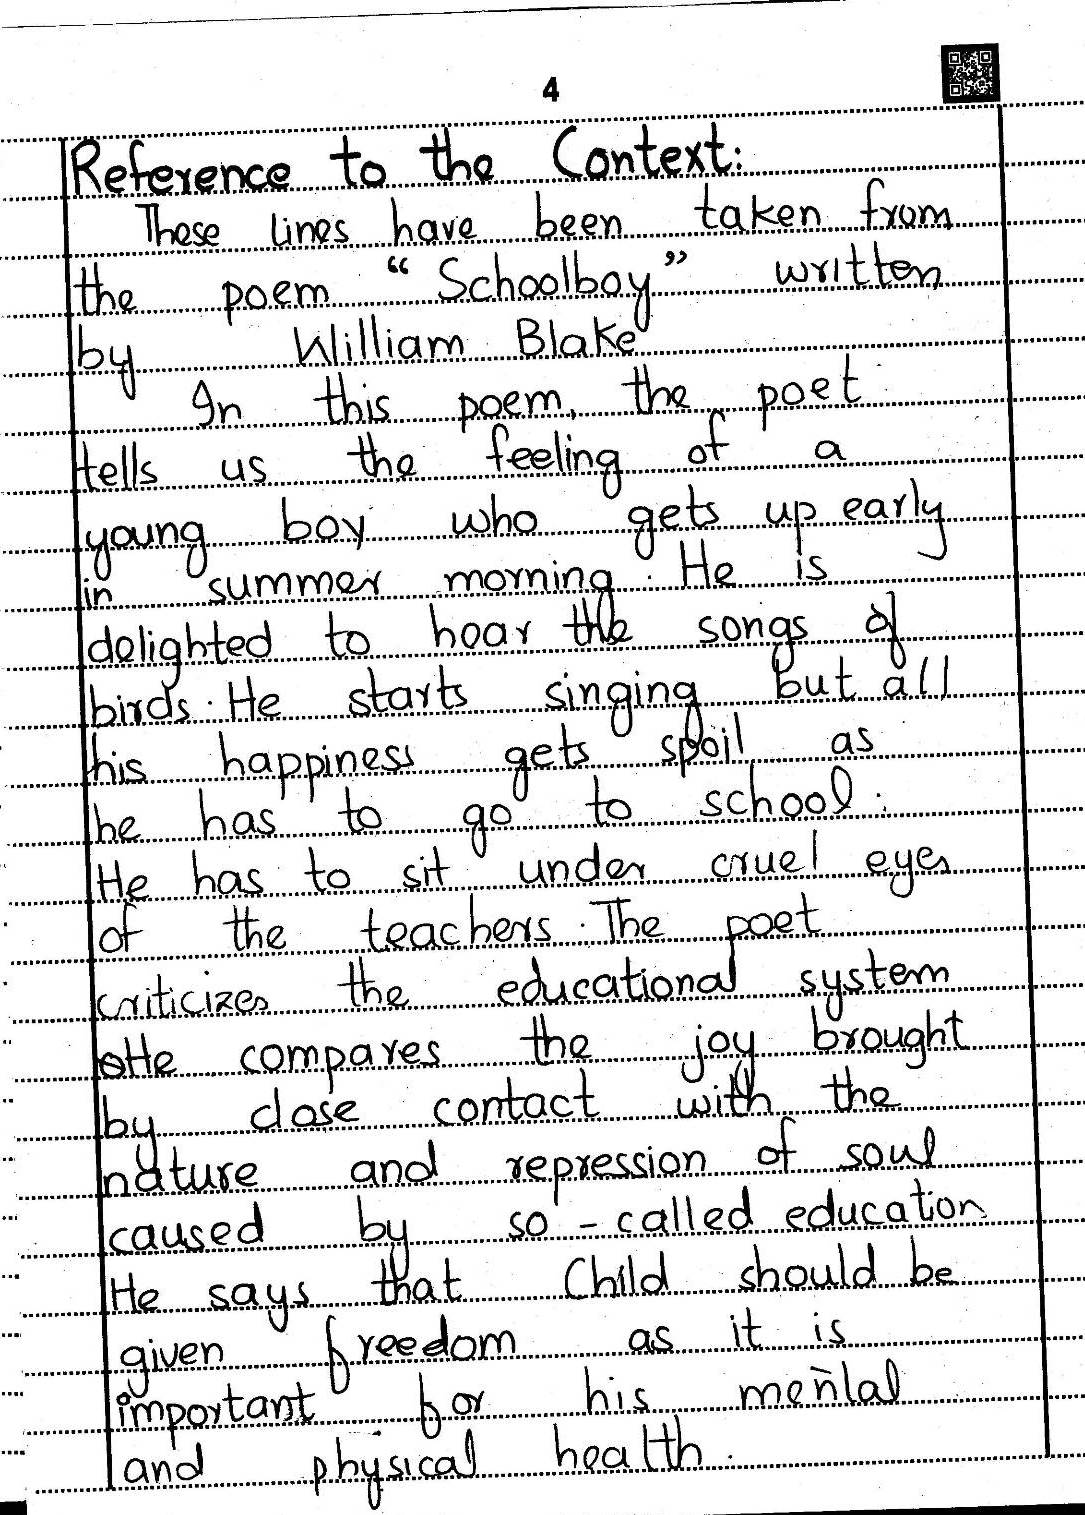 4
Reference to the Context:
These lines have been taken from
the poem “Schoolboy” written
by William Blake
In this poem, the poet
tells us the feeling of a
young boy who gets up early
in summer morning. He is
delighted to hear the songs of
birds. He starts singing but all
his happiness gets spoil as
he has to go to school.
He has to sit under cruel eyes
of the teachers. The poet
criticizes the educational system
He compares the joy brought
by close contact with the
nature and repression of soul
caused by so-called education
He says that Child should be
given freedom as it is
important for his mental
and physical health.